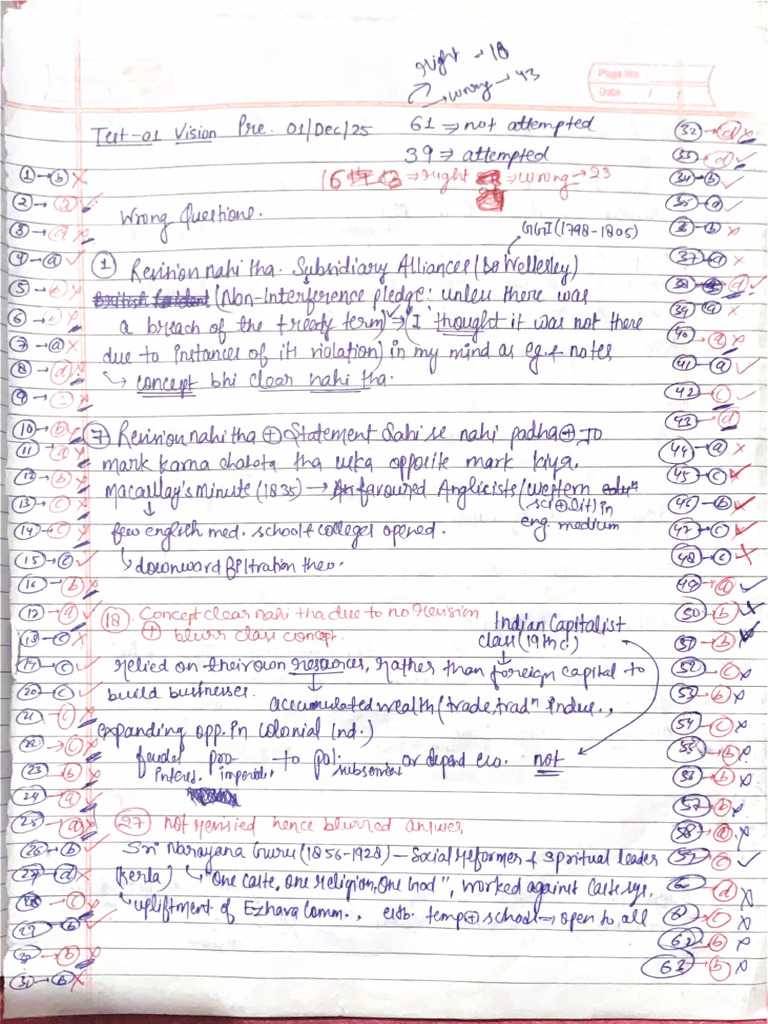 right → 18
wrong → 43
Page No
Date / /
Test-01 Vision Pre. 01/Dec/25
61 ⇒ not attempted
39 ⇒ attempted
16 ⇒ right ⇒ wrong → 23
Wrong Questions.
GGI (1798-1805)
① Revision nahi tha. Subsidiary Alliances (Lo Wellesley)
(Non-Interference pledge: unless there was
a breach of the treaty term) → (I thought it was not there
due to instances of its violation) in my mind as eg. & notes
↳ concept bhi clear nahi tha.
⑦ Revision nahi tha ⊕ Statement Sahi se nahi padha ⊕ Jo
mark karna chahta tha uska opposite mark kiya.
Macaulay's minute (1835) → favoured Anglicists (western
(sci ⊕ lit) in
eng. medium
↓
few english med. school & colleges opened.
↳ downward filtration theo.
⑱ Concept clear nahi tha due to no revision
⊕ blurr class concept.
Indian Capitalist
class (19th c.)
relied on their own resources, rather than foreign capital to
build businesses.
accumulated wealth (trade, tradn indus.,
expanding opp. in colonial Ind.)
feudal pro to pol. subservient or depend eco. not
interes. imperialis
㉗ not revised hence blurred answer
Sri Narayana Guru (1856-1928) – Social reformer & spritual leader
(Kerla) ↳ "One caste, one religion, One God", worked against Caste sys.
↳ upliftment of Ezhava Comm., esb. temp ⊕ school → open to all
① → b ×
② → a
③ → a ×
④ → a ✓
⑤ → ×
⑥ → ×
⑦ → a ×
⑧ → d
⑨ → ×
⑩ → b
⑪ → a
⑫ → b
⑬ → c
⑭ → c
⑮ → c ✓
⑯ → b ×
⑰ → a ✓
⑱ → c ×
⑲ → c ✓
⑳ → c ✓
㉑ → c
㉒ → c
㉓ → b
㉔ → a
㉕ → a
㉖ → b ✓
㉗ → a ×
㉘ → c
㉙ → b ✓
㉚ → b
㉛ → b ×
㉜ → d ×
㉝ → d ✓
㉞ → b ✓
㉟ → a ✓
→ b ×
㊲ → a ×
㊳ → d ✓
㊴ a ×
㊵ → a ×
㊶ → a ✓
㊷ → c ✓
㊸ → d
㊹ → a ×
㊺ → c
㊻ → b
㊼ → c
㊽ → c ×
㊾ → a ✓
㊿ → b
51 → b
52 → c ×
53 → b ×
54 → c ×
55 → b ×
56 → b ×
57 → b ×
58 → a ×
59 → c ✓
60 → d ×
61 → c ×
62 → b ×
63 → b ×